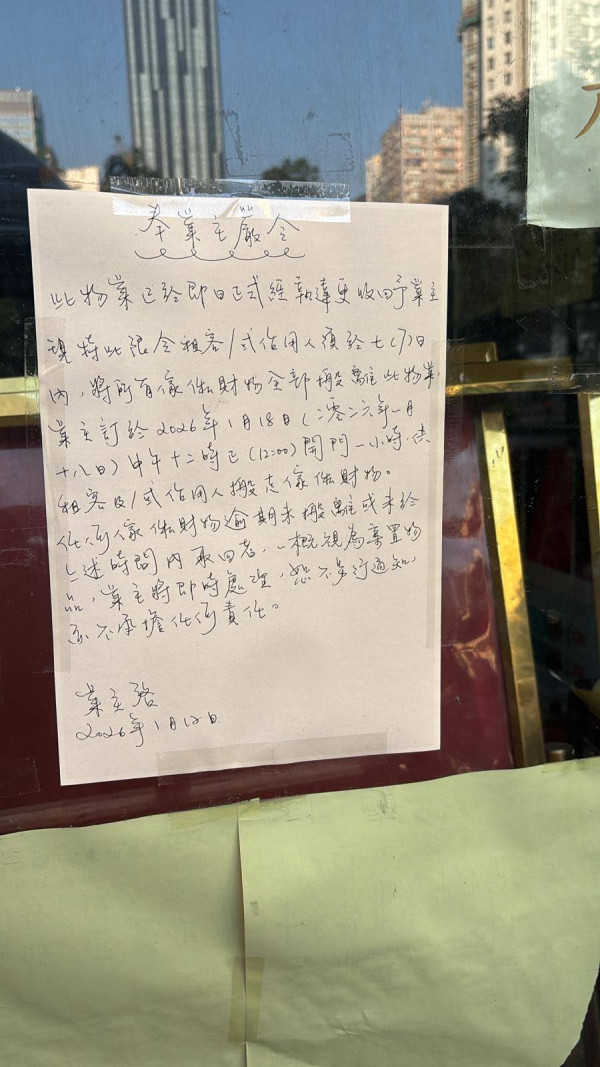 奉業主嚴令
此物業已於即日正式經執達吏收回予業主
現特此限令租客/或佔用人須於七(7)日
內，將所有傢俬財物全部搬離此物業。
業主訂於2026年1月18日(二零二六年一月
十八日)中午十二時正(12:00)開門一小時，供
租客及/或佔用人搬走傢俬財物。
任何傢俬財物逾期未搬離或未於
上述時間內取回者，一概視為棄置物
品，業主將即時處理，恕不另行通知
亦不承擔任何責任。
業主啓
2026年1月12日